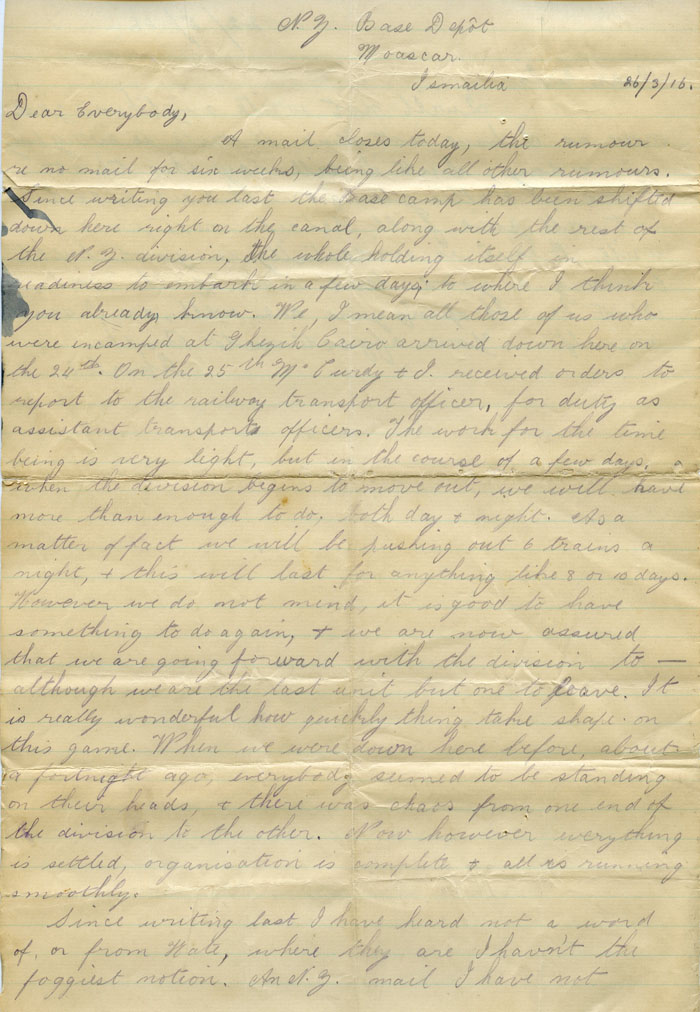 N.Z. Base Depôt
Moascar.
Ismailia 26/3/16.
Dear Everybody,
A mail closes today, the rumour
re no mail for six weeks, being like all other rumours.
Since writing you last the Base camp has been shifted
down here right on the canal, along with the rest of
the N.Z. division, the whole holding itself in
readiness to embark in a few days; to where I think
you already know. We, I mean all those of us who
were incamped at Ghezik Cairo arrived down here on
the 24th. On the 25th McCurdy & I. received orders to
report to the railway transport officer, for duty as
assistant transport officers. The work for the time
being is very light, but in the course of a few days,
when the division begins to move out, we will have
more than enough to do, both day & night. As a
matter of fact we will be pushing out 6 trains a
night, & this will last for anything like 8 or 10 days.
However we do not mind, it is good to have
something to do again, & we are now assured
that we are going forward with the division to —
although we are the last unit but one to leave. It
is really wonderful how quickly thing take shape on
this game. When we were down here before, about
a fortnight ago, everybody seemed to be standing
on their heads, & there was chaos from one end of
the division to the other. Now however everything
is settled, organisation is complete & all is running
smoothly.
Since writing last I have heard not a word
of, or from Wate, where they are I havn't the
foggiest notion. An N.Z. mail I have not